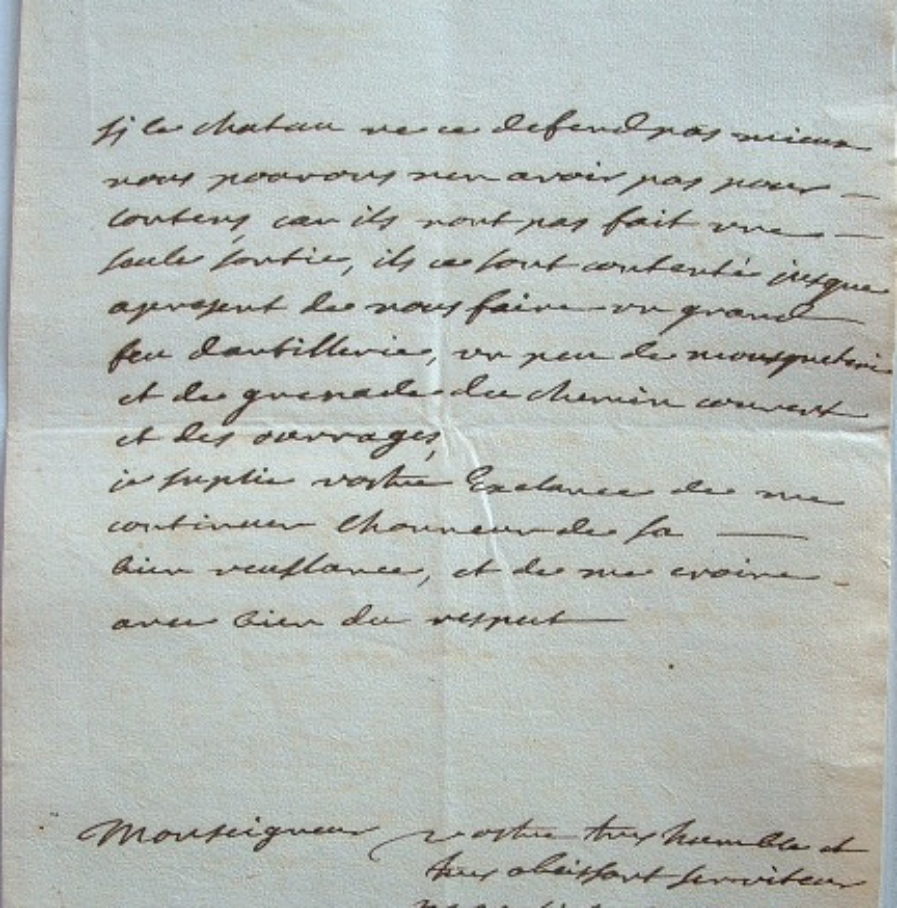 sj le chatau ne ce defend pas mieux
nous pouvons nen avoir pas pour
contens, car ils nont pas fait vne
seule sortie, ils ce sont contentés jusque
apresent de nous faire vn grand
feu dartillerie, vn peu de mousqueterie
et de grenade du chemin couvert
et des ouvrages,
je suplie vostre Exelance de me
continuer lhonneur de sa
bien veuslance, et de me croire
avec bien du respect
Monseigneur vostre tres humble et
tres obeissant serviteur